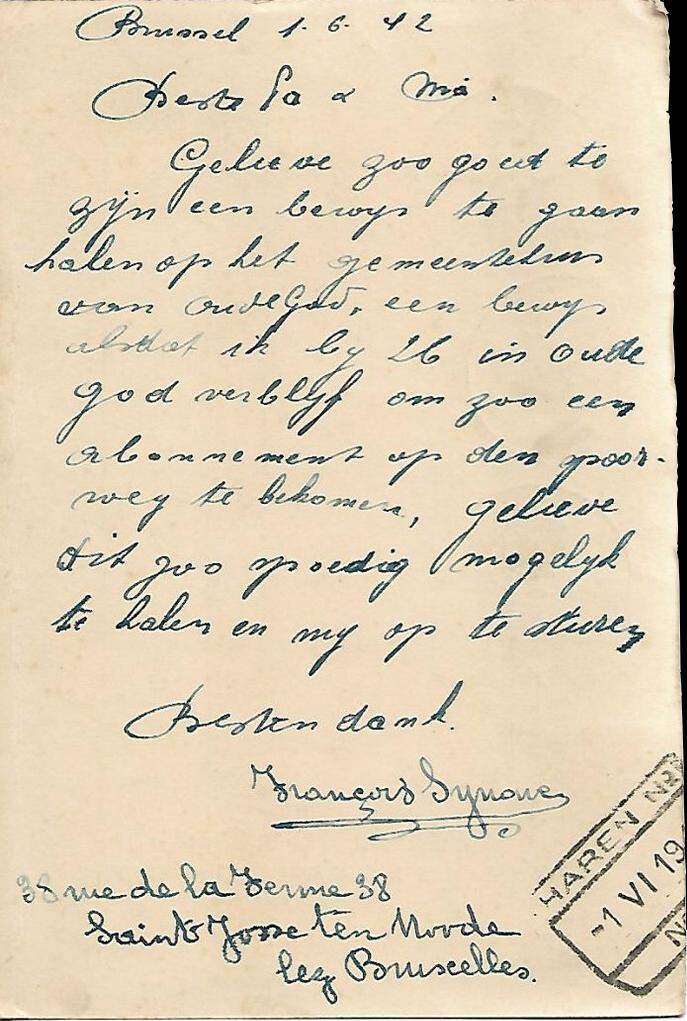 Brussel 1-6-42
Beste Pa & Ma.
Gelieve zoo goed te
zijn een bewijs te gaan
halen op het gemeentehuis
van Oude God, een bewijs
alsdat ik bij 26 in Oude
God verblijf om zoo een
abonnement op den spoor-
weg te bekomen, gelieve
dit zoo spoedig mogelijk
te halen en mij op te sturen
Besten dank.
François
38 rue de la Ferme 38
Saint Josse ten Noode
lez Bruxelles.
HAREN No
-1 VI 19